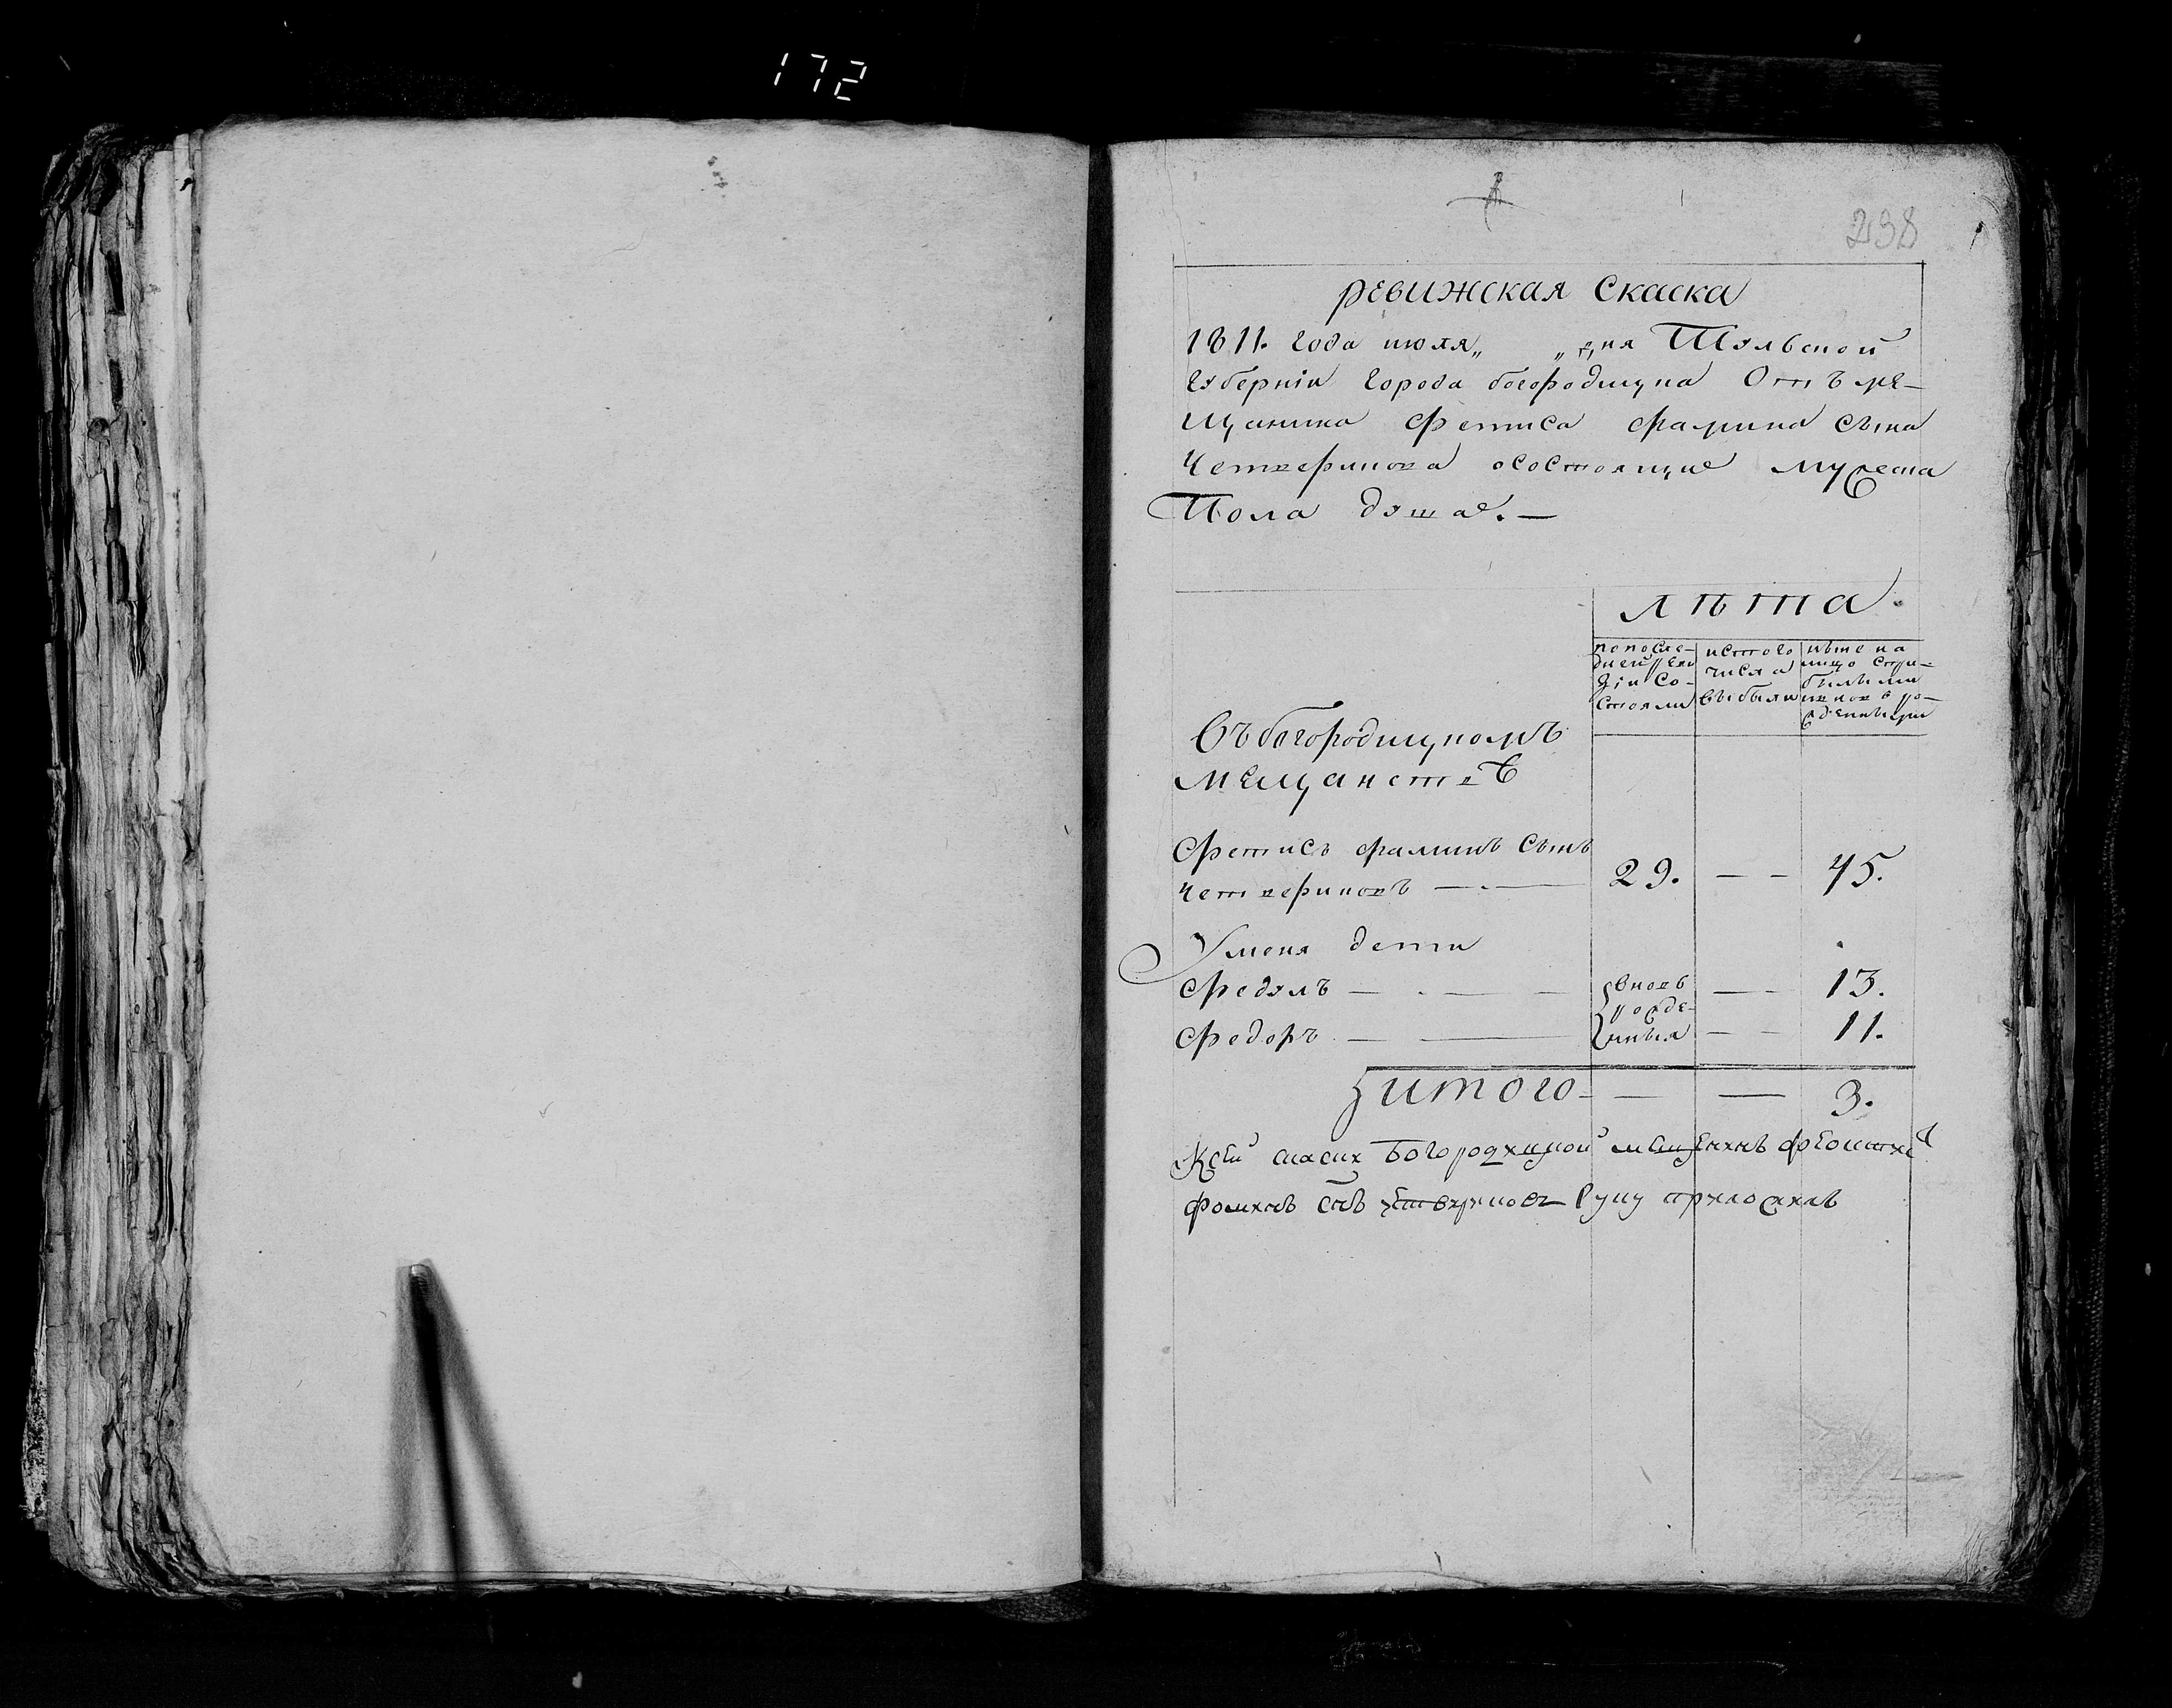 172
238
ревижская скаска
1811. года июля „ „ дня Тульской
губерніи города богородицка Отъ ме-
щанина фетиса фамина сына
Четверикова осостоящие мужеска
Пола душае. —
лѣта.
попосле-
дней реви
зіи со-
стояли
истого
числа
выбыли
ныне на
лицо
Въбогородицкомъ
мещанствѣ
Фетисъ фаминъ сынъ
четвериковъ — . — 29. — — 45.
Уменя дети
Федулъ — . — — вновь — - 13.
рожде-
Федоръ — — нныя — — 11.
итого — — — 3.
Ксей скаски Богородицкой мещенинъ
фоминъ снъ руку приложилъ